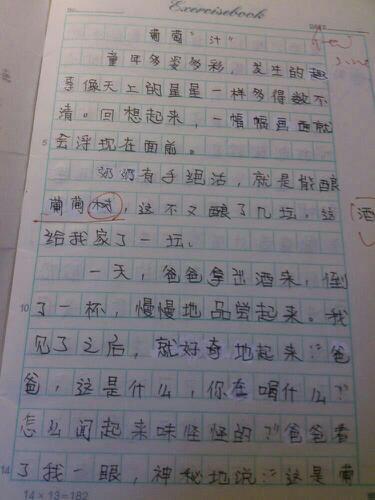 Exercisebook
葡萄"汁"
童年多姿多彩,发生的趣
事像天上的星星一样多得数不
清。回想起来,一幅幅画面就
5
会浮现在面前。
奶奶有手绝活,就是能酿
葡萄 酒
,这不又酿了几坛,这
给我家了一坛。
一天,爸爸拿出酒来,倒
10
了一杯,慢慢地品尝起来。我
见了之后,就好奇地起来:"爸
爸,这是什么,你在喝什么?
怎么闻起来味怪怪的?"爸爸看
14
了我一眼,神秘地说:"这是葡
14×13=182